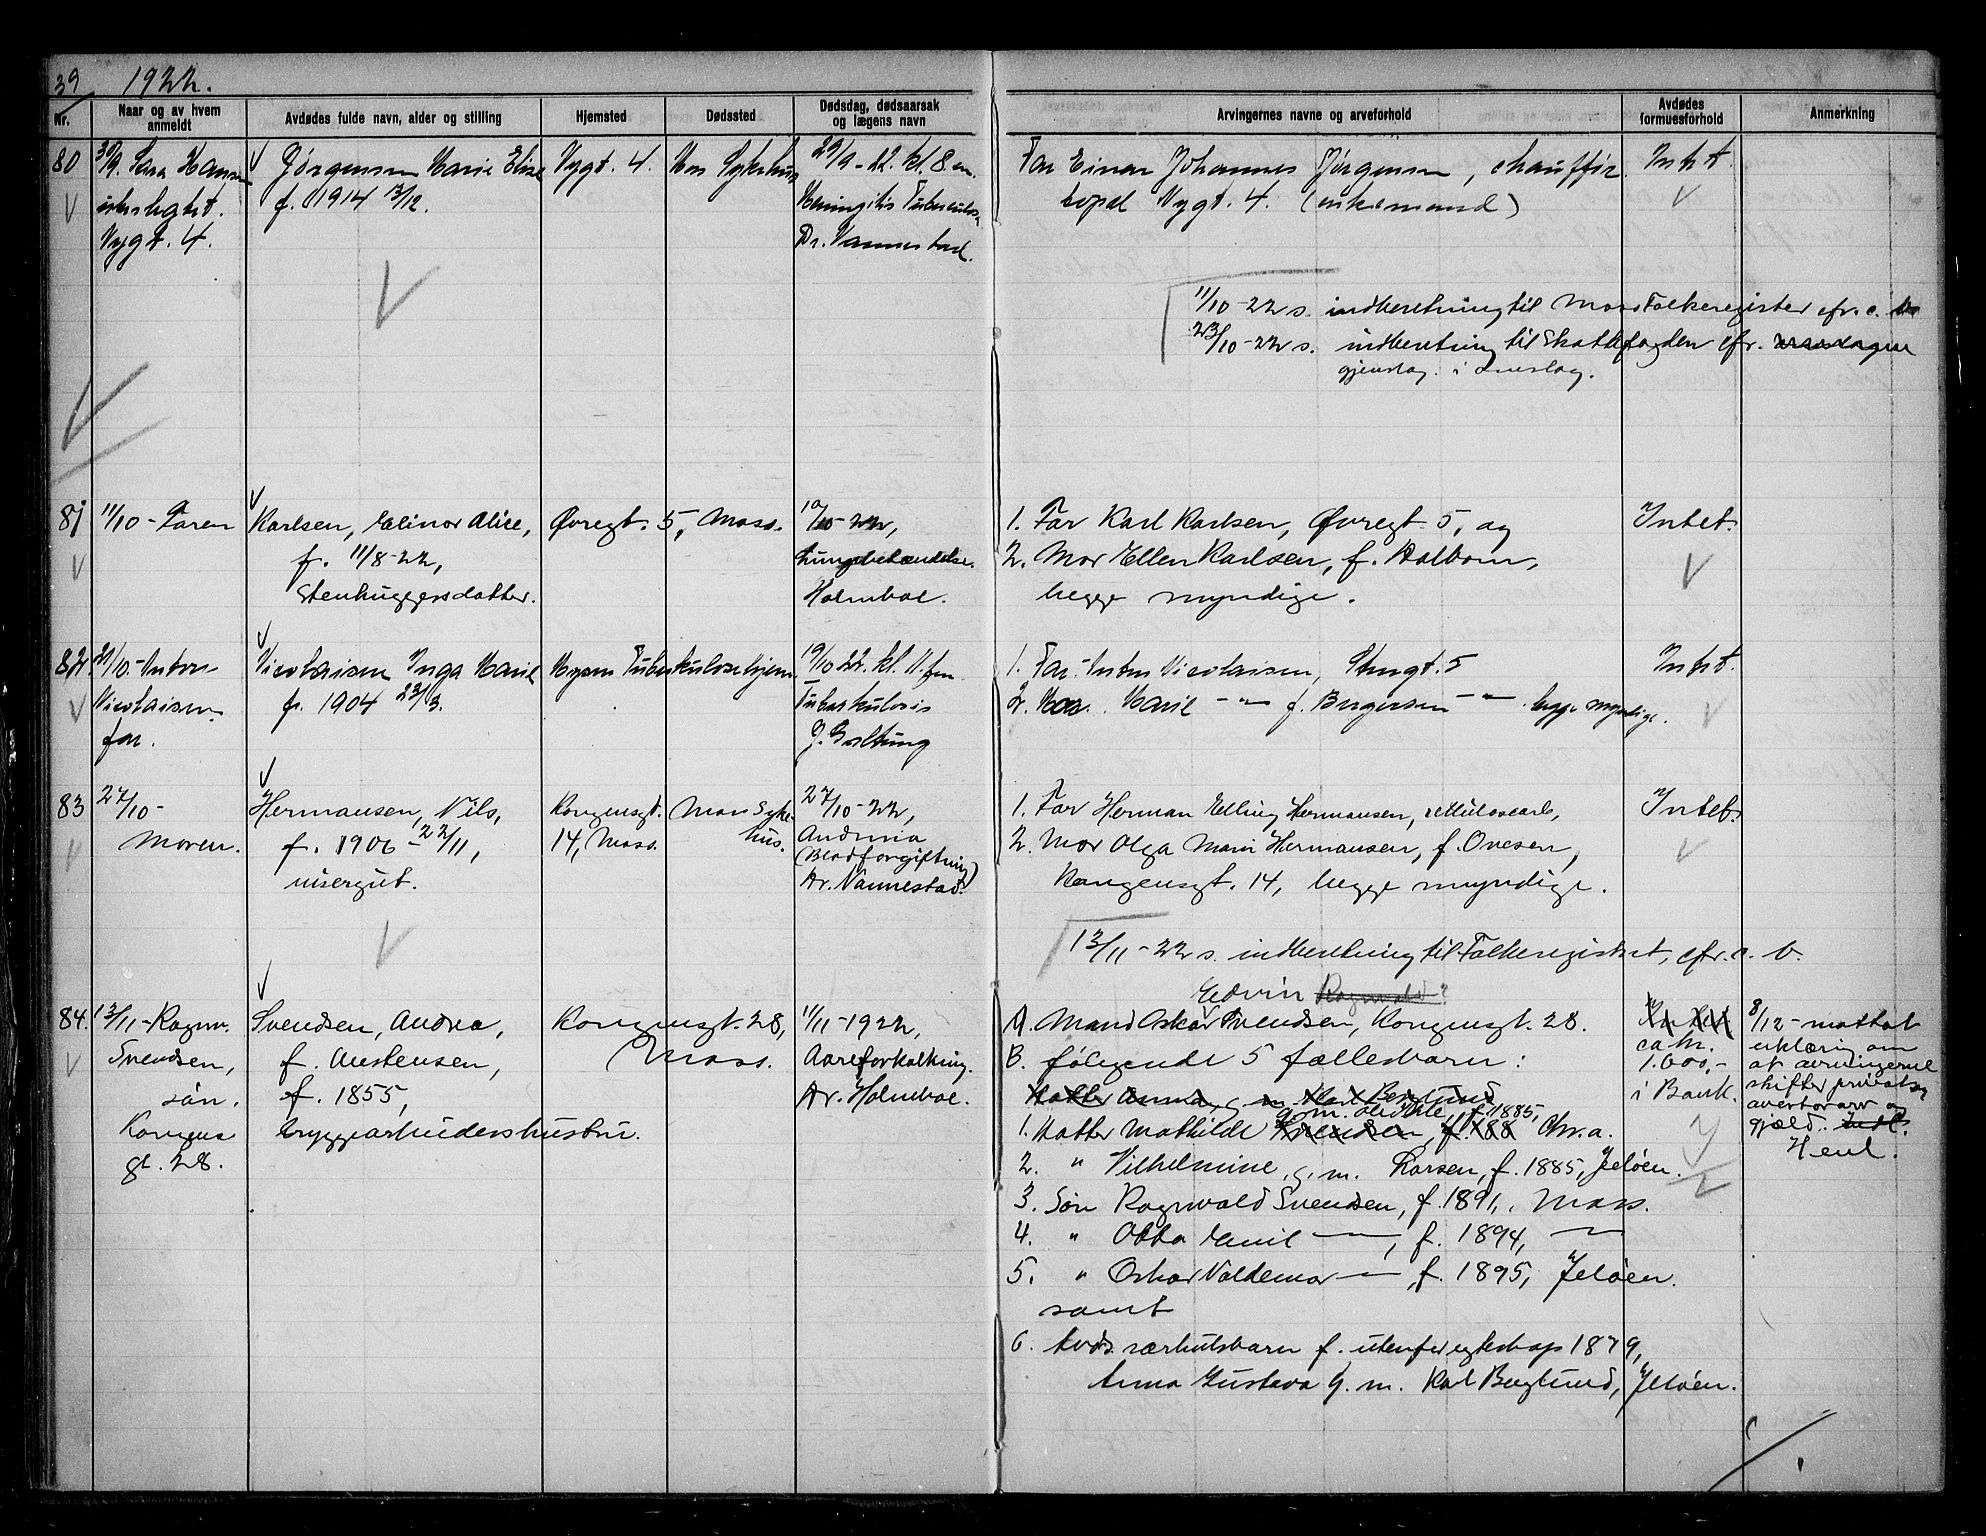 39 1922.
Nr.
Naar og av hvem anmeldt
Avdødes fulde navn, alder og stilling
Hjemsted
Dødssted
Dødsdag, dødsaarsak og lægens navn
Arvingernes navne og arveforhold
Avdødes formuesforhold
Anmerkning
80
30/9. Sara Hansen
Vygt. 4.
Jørgensen Marie Elise
f. 1914 13/12.
Vygt. 4.
Mos Sykehus
29/9-22. kl. 8 em.
Meningitis Tuberculosa
Dr. Vannestad.
Far Einar Johannes Jørgensen, chauffør.
bopæl Vygt. 4. (enkemand)
Intet
11/10-22 s. indberetning til Moss Folkeregister cfr. c. b
23/10-22 s. indberetning til Skattefogden cfr.
gjenslag. i omslag.
81
11/10 - Faren
Karlsen, Elinor Alice,
f. 11/8-22,
Stenhuggersdatter.
Øvregt. 5, Moss.
10/10-22,
Lungebetændelse.
Holmboe.
1. Far Karl Karlsen, Øvregt. 5, og
2. Mor Ellen Karlsen, f. Holbom,
begge myndige.
Intet.
82
21/10.- Anton
Nicolaisen
far.
Nicolaisen Inga Marie
f. 1904 23/3.
Mysen Tuberkulosehjem
19/10 22. kl. 11. fm.
Tuberkulosis
J. Galtung
1. Far Anton Nicolaisen, Stengt. 5
2. Mor. Marie - " - f. Bergersen - " - begge myndige.
Intet.
83
27/10 -
Moren.
Hermansen, Nils,
f. 1906 - 22/11,
visergut.
Kongensgt.
14, Moss.
Moss Syke-
hus.
27/10-22,
(Blodforgiftning)
Dr. Vannestad.
1. Far Herman Elling Hermansen, cellulosearb,
2. Mor Olga Marie Hermansen, f. Ovesen,
Kongensgt. 14, begge myndige.
Intet.
13/11-22 s. indberetning til Folkeregistret, cfr. c. b.
84.
13/11-Ragnv.
Svendsen,
søn.
Kongens
gt. 28.
Svendsen, Andrea,
f. Austensen,
f. 1855,
bryggearbeidershustru.
Kongensgt. 28,
Moss.
11/11-1922,
Aareforkalkning.
Dr. Holmboe.
Edvin Ragnvald?
A. Mand Oskar Svendsen, Kongensgt. 28.
B. følgende 5 fællesbarn:
Datter Anna, g. m. Karl Berglund
g. m. f. 1885,
1. Datter Mathilde Svendsen, f. 188 Chr.a.
2. " Vilhelmine, g. m. Larsen, f. 1885, Jeløen.
3. Søn Ragnvald Svendsen, f. 1891, Moss.
4. " Otto Emil —, f. 1894, —
5. " Oskar Valdemar —, f. 1895, Jeløen.
samt
6. Avds. særkulsbarn f. utenfor egteskap 1879,
Anna Gustava g. m. Karl Berglund, Jeløen.
ca kr.
1.600,-
i Bank.
8/12- mottat
erklæring om
at arvingerne
skifter privat og
overtar arv og
gjæld.
Henl.